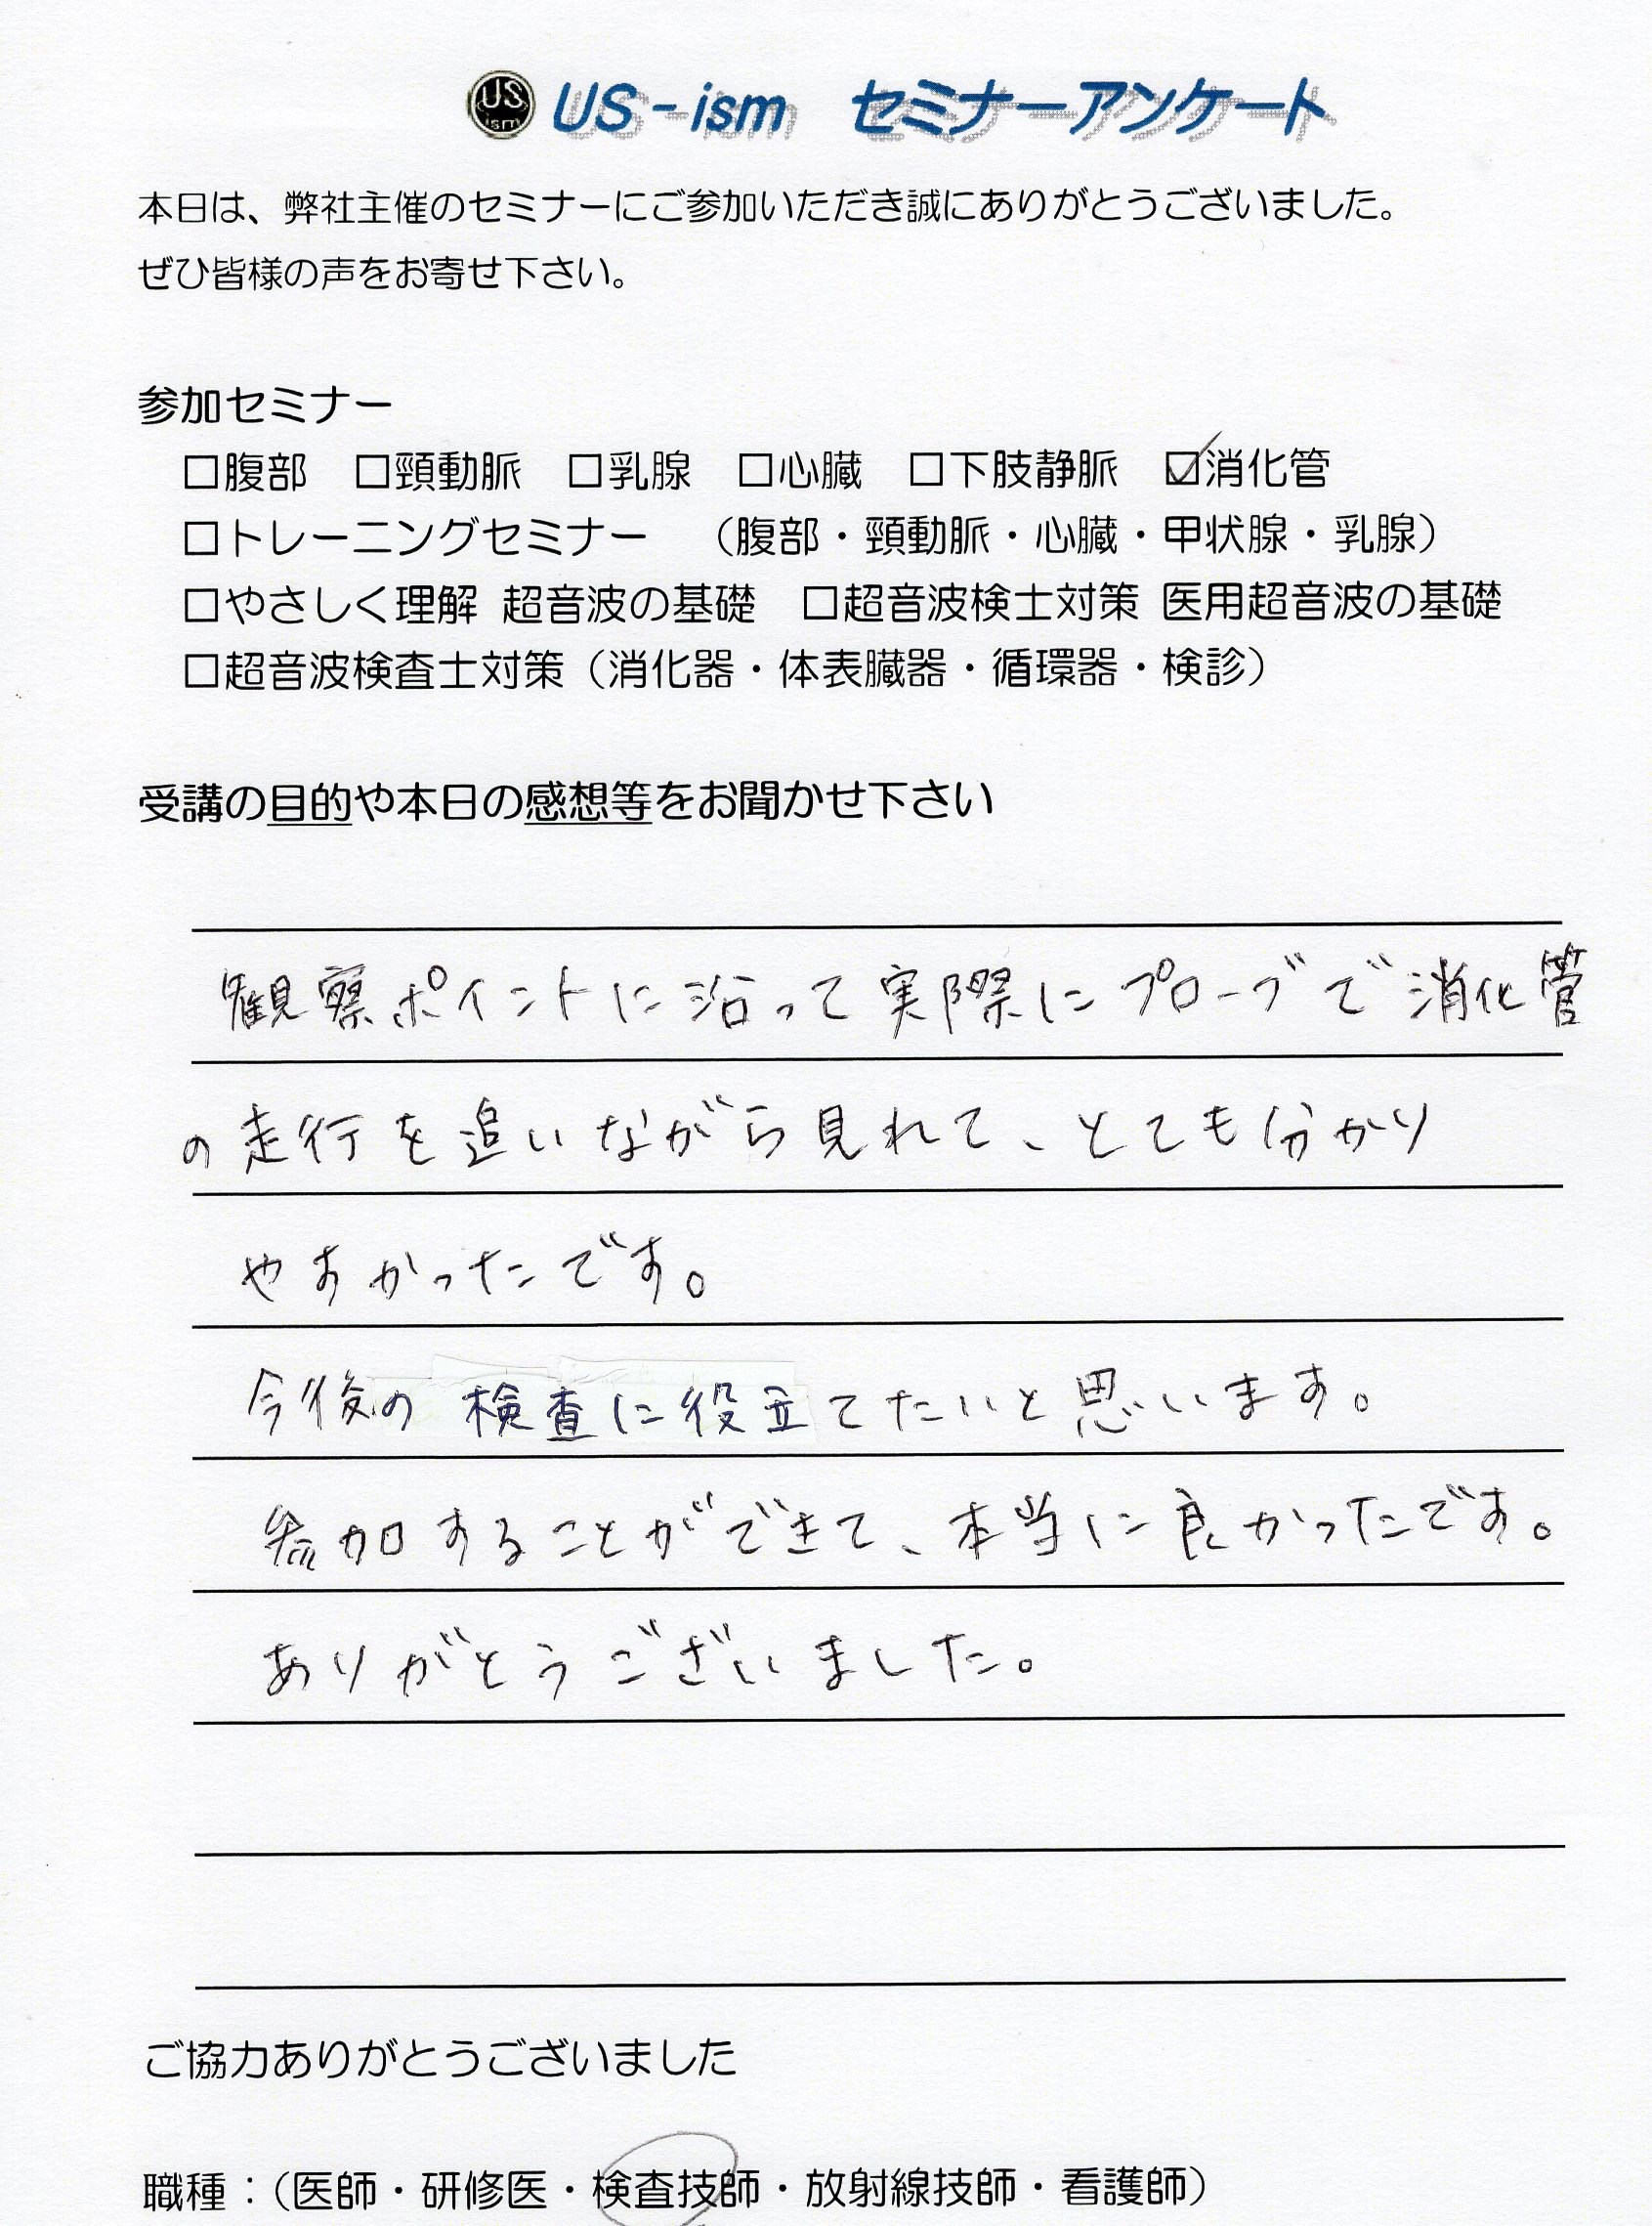 US ism US-ism セミナーアンケート
本日は、弊社主催のセミナーにご参加いただき誠にありがとうございました。
ぜひ皆様の声をお寄せ下さい。
参加セミナー
□腹部 □頸動脈 □乳腺 □心臓 □下肢静脈 ☑消化管
□トレーニングセミナー （腹部・頸動脈・心臓・甲状腺・乳腺）
□やさしく理解 超音波の基礎 □超音波検士対策 医用超音波の基礎
□超音波検査士対策（消化器・体表臓器・循環器・検診）
受講の目的や本日の感想等をお聞かせ下さい
観察ポイントに沿って実際にプローブで消化管
の走行を追いながら見れて、とても分かり
やすかったです。
今後の検査に役立てたいと思います。
参加することができて、本当に良かったです。
ありがとうございました。
ご協力ありがとうございました
職種：（医師・研修医・検査技師・放射線技師・看護師）